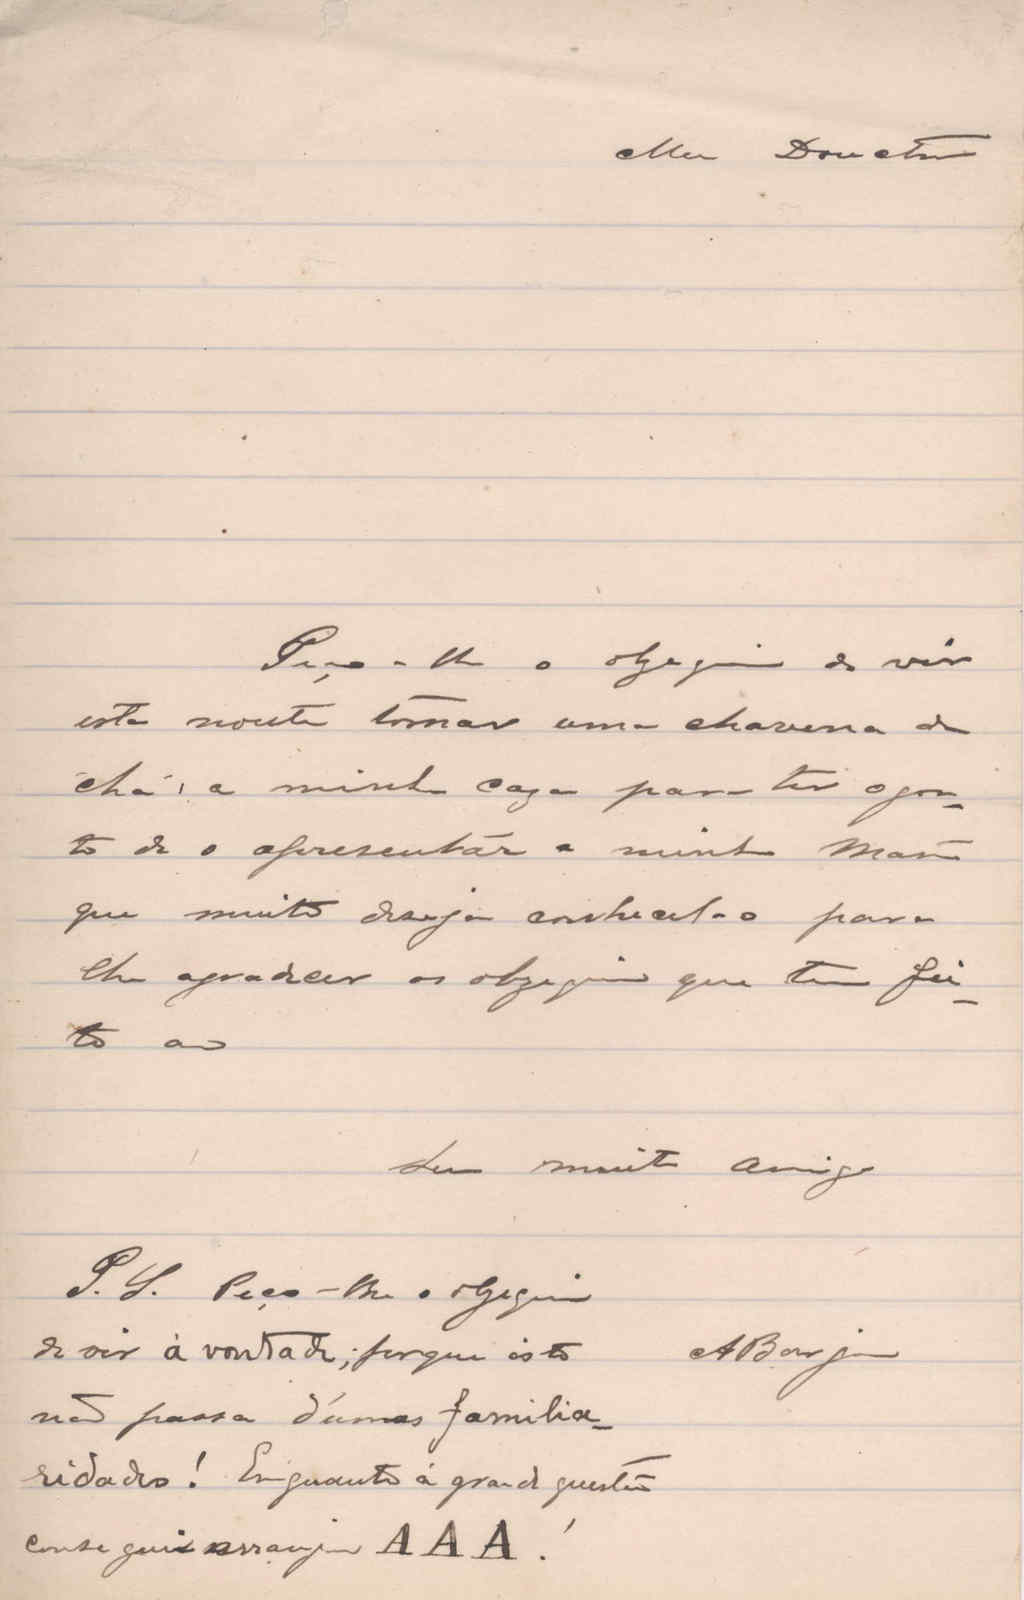 Meu Douctor
Peço-lhe o obzequio de vir
esta noute tomar uma chavena de
chá, a minha caza para ter o gos-
to de o apresentár a minha Mamã
que muito deseja conhecel-o para
lhe agradecer os obzequios que tem fei-
to ao
Seu muito amigo
P.S. Peço-lhe o obzequio
de vir à vontade; porque isto
não passa d'umas familia-
ridades! Emquanto á grande questão
consegui arranjar AAA!